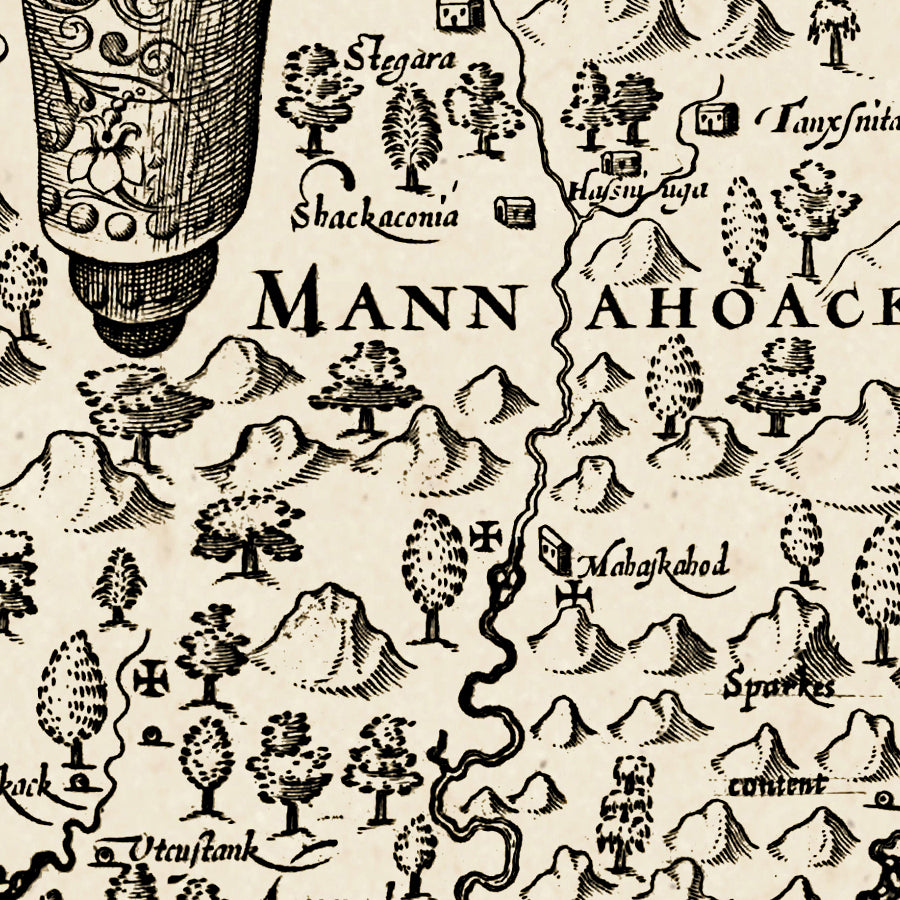 Stegara
Tanxſnita
Shackaconia
MANNAHOACK
Mahaſkahod
Sparkes
content
kack
Utcuſtank